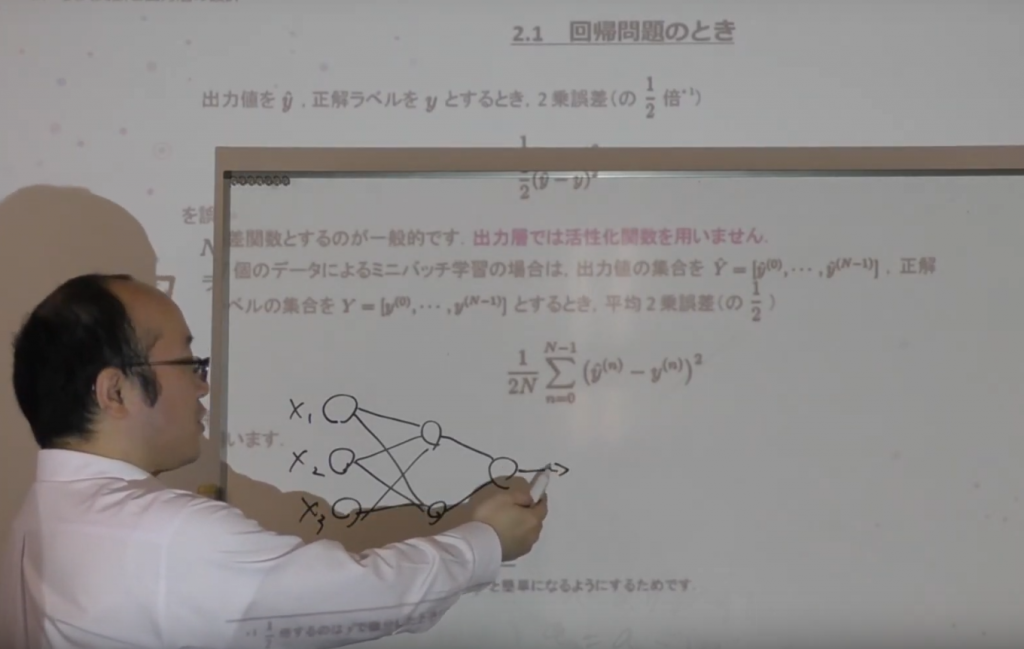 2.1 回帰問題のとき
出力値を ŷ , 正解ラベルを y とするとき, 2乗誤差(の 1/2 倍*1)
1/2(ŷ − y)²
を誤差関数とするのが一般的です. 出力層では活性化関数を用いません.
N 個のデータによるミニバッチ学習の場合は, 出力値の集合を Ŷ = [ŷ⁽⁰⁾, ⋯ , ŷ⁽ᴺ⁻¹⁾] , 正解
ラベルの集合を Y = [y⁽⁰⁾, ⋯ , y⁽ᴺ⁻¹⁾] とするとき, 平均2乗誤差(の 1/2)
1/2N ∑_{n=0}^{N−1} (ŷ⁽ⁿ⁾ − y⁽ⁿ⁾)²
います.
X₁
X₂
X₃
と簡単になるようにするためです.
*1 1/2 倍するのは